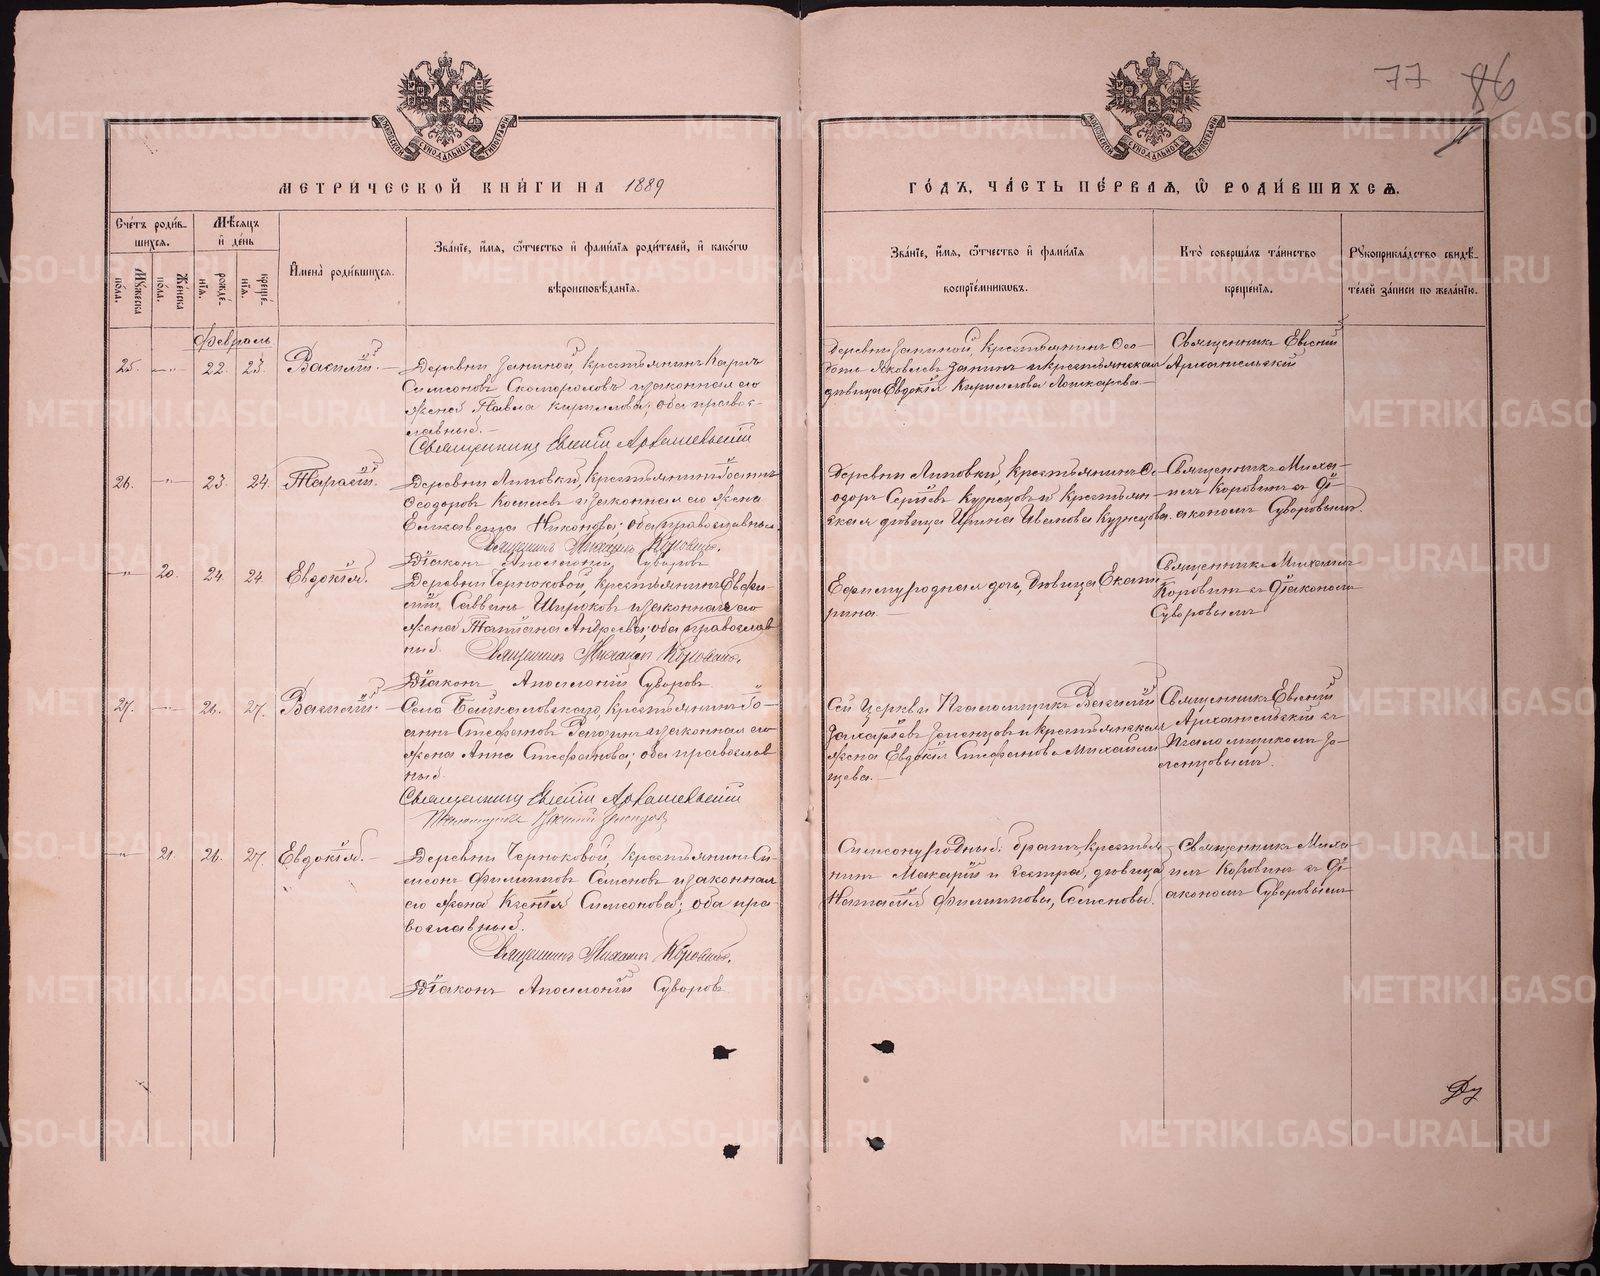 77 86
МЕТРИ́ЧЕСКОЙ КНИ́ГИ НА 1889
ГО́ДЪ, ЧА́СТЬ ПЕ́РВАѦ, Ѡ РОДИ́ВШИХСѦ.
Сче́тъ роди́в-
шихсѧ.
Мѣ́сѧцъ
и́ де́нь
Мꙋ́жеска
по́ла.
Же́нска
по́ла.
рожде́-
нїѧ.
креще́-
нїѧ.
И҆мена̀ роди́вшихсѧ.
Зва́нїе, и҆́мѧ, ѻ҆́тчество и҆ фами́лїѧ роди́телей, и҆ како́гѡ
вѣроисповѣ́данїѧ.
Зва́нїе, и҆́мѧ, ѻ҆́тчество и҆ фами́лїѧ
воспрїе́мникѡвъ.
Кто̀ соверша́лъ та́инство
креще́нїѧ.
Рꙋкоприкла́дство свидѣ́-
телей за́писи по жела́нїю.
Февраль
25. —„— 22. 23. Василій. —
Деревни Заниной, крестьянинъ Карпъ
Симеоновъ Скомороховъ и законная его
жена Павла Кириллова; оба право-
славные. —
Священникъ Евгеній Архангельскій
Деревни Заниной, крестьянинъ Ѳео-
дотъ Яковлевъ Занинъ и крестьянская
дѣвица Евдокія Кириллова Лошкарева —
Священникъ Евгеній
Архангельскій
26. —„— 23. 24. Тарасій. —
Деревни Липовки, крестьянинъ
Ѳеодоровъ и законная его жена
Елисавета Никонова; оба православные
Священникъ Михаилъ Коровинъ.
Діаконъ Аполлоній Суворовъ
Деревни Липовки, крестьянинъ Ѳе-
одоръ Сергіевъ Кузнецовъ и крестьян-
ская дѣвица Ирина Иванова Кузнецова.
Священникъ Миха-
илъ Коровинъ съ Ді-
акономъ Суворовымъ.
—„— 20. 24. 24 Евдокія. —
Деревни Чернаковой, крестьянинъ
Саввинъ Широковъ и законная его
жена Татіана Андреева; оба православ-
ные. Священникъ Михаилъ Коровинъ.
Діаконъ Аполлоній Суворовъ
родная дочь, дѣвица Екате-
рина. —
Священникъ Михаилъ
Коровинъ съ Діакономъ
Суворовымъ
27. —„— 26. 27. Василій. —
Села Байкаловскаго, крестьянинъ Іо-
аннъ Стефановъ и законная его
жена Анна Стефанова; оба православ-
ные.
Священникъ Евгеній Архангельскій
Псаломщикъ Василій Зеленцовъ
Сей церкви Псаломщикъ Василій
Захаріевъ Зеленцовъ и крестьянская
жена Евдокія Стефанова Михайли-
щева. —
Священникъ Евгеній
Архангельскій съ
Псаломщикомъ Зе-
ленцовымъ.
—„— 21. 26. 27. Евдокія. —
Деревни Чернаковой, крестьянинъ Си-
меонъ Филипповъ Семеновъ и законная
его жена Ксенія Симеонова; оба пра-
вославные.
Священникъ Михаилъ Коровинъ.
Діаконъ Аполлоній Суворовъ
Симеону родные: братъ, крестья-
нинъ Макарій и сестра, дѣвица
Наталія Филипповы, Семеновы.
Священникъ Миха-
илъ Коровинъ съ Ді-
акономъ Суворовымъ
METRIKI.GASO-URAL.RU